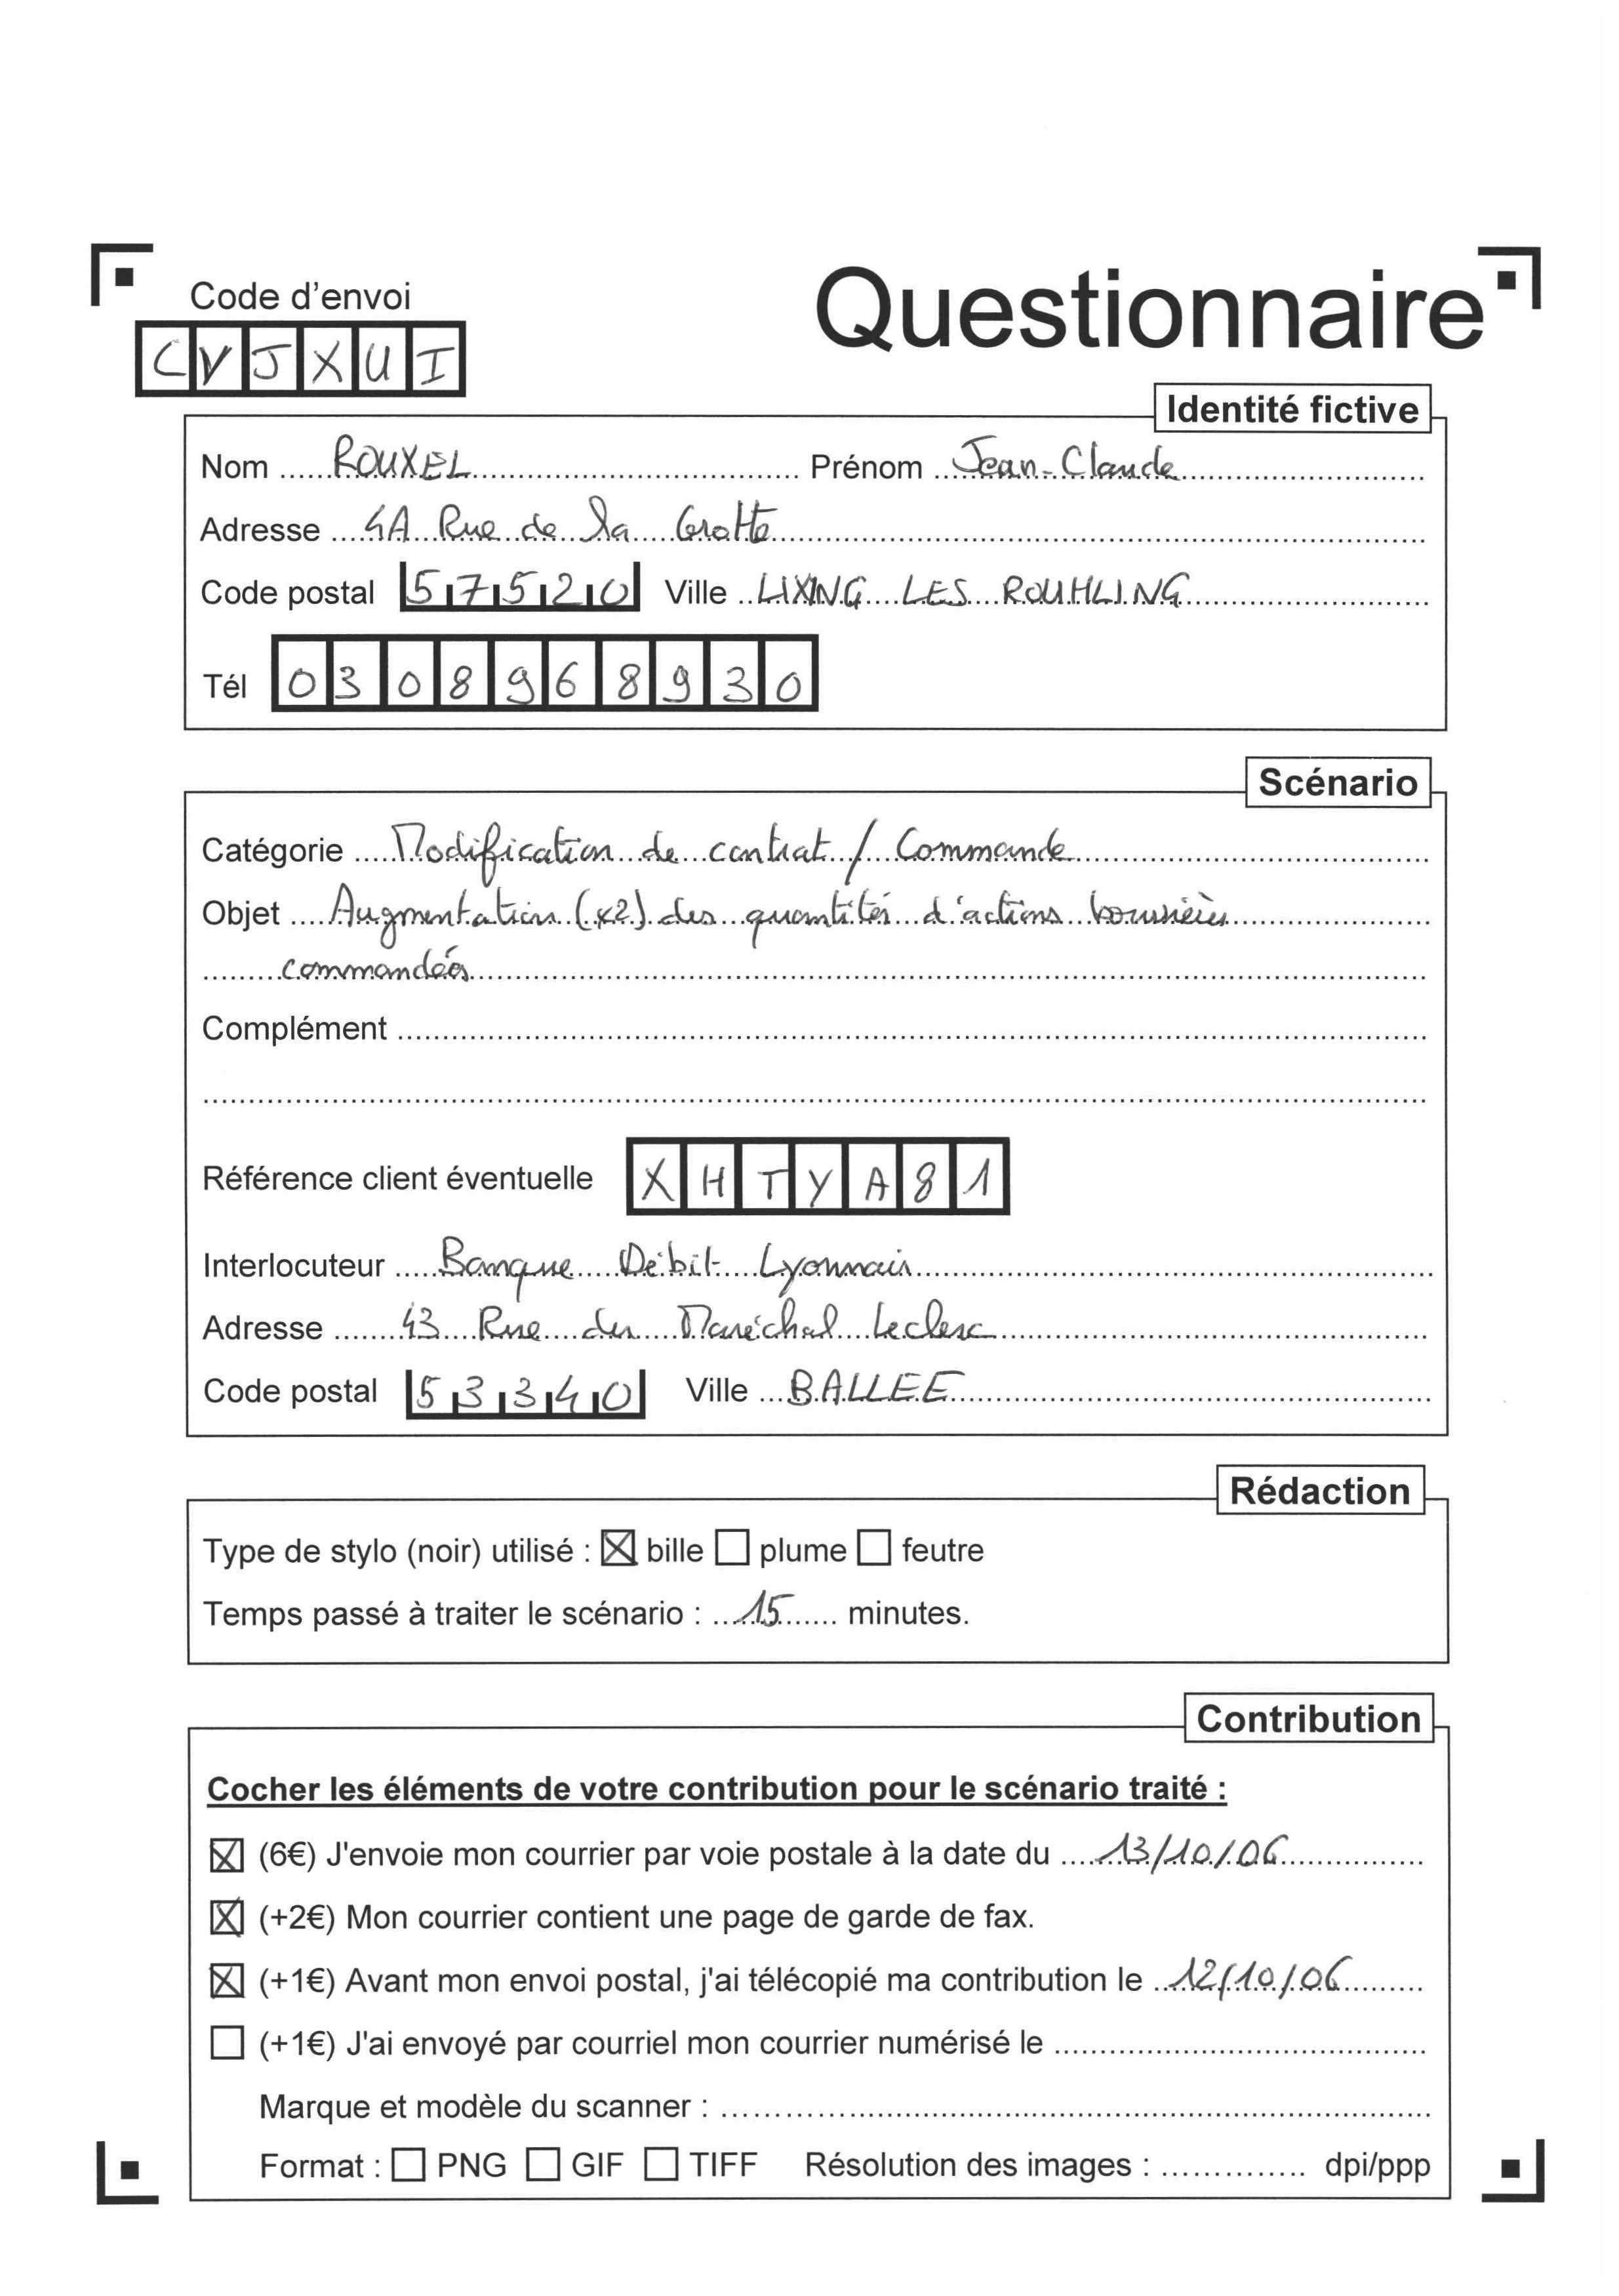 Code d'envoi
Questionnaire
CVJXUI
Identité fictive
Nom ROUXEL Prénom Jean-Claude
Adresse 4A Rue de la Grotte
Code postal 57520 Ville LIXING LES ROUHLING
Tél 0308968930
Scénario
Catégorie Modification de contrat / Commande
Objet Augmentation (x2) des quantités d'actions boursières
commandées
Complément
Référence client éventuelle XHTYA81
Interlocuteur Banque Débit Lyonnais
Adresse 43 Rue du Maréchal Leclerc
Code postal 53340 Ville BALLEE
Rédaction
Type de stylo (noir) utilisé : ☒ bille ☐ plume ☐ feutre
Temps passé à traiter le scénario : 15 minutes.
Contribution
Cocher les éléments de votre contribution pour le scénario traité :
☒ (6€) J'envoie mon courrier par voie postale à la date du 13/10/06
☒ (+2€) Mon courrier contient une page de garde de fax.
☒ (+1€) Avant mon envoi postal, j'ai télécopié ma contribution le 12/10/06
☐ (+1€) J'ai envoyé par courriel mon courrier numérisé le
Marque et modèle du scanner :
Format : ☐ PNG ☐ GIF ☐ TIFF Résolution des images : dpi/ppp